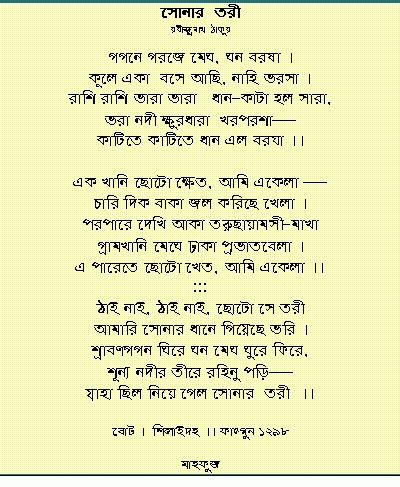 সোনার তরী
রবীন্দ্রনাথ ঠাকুর
গগনে গরজে মেঘ, ঘন বরষা ।
কূলে একা বসে আছি, নাহি ভরসা ।
রাশি রাশি ভারা ভারা ধান-কাটা হল সারা,
ভরা নদী ক্ষুরধারা খরপরশা—
কাটিতে কাটিতে ধান এল বরষা ।।
এক খানি ছোটো ক্ষেত, আমি একেলা —
চারি দিক বাকা জল করিছে খেলা ।
পরপারে দেখি আকা তরুছায়ামসী-মাখা
গ্রামখানি মেঘে ঢাকা প্রভাতবেলা ।
এ পারেতে ছোটো খেত, আমি একেলা ।।
:::
ঠাই নাই, ঠাই নাই, ছোটো সে তরী
আমারি সোনার ধানে গিয়েছে ভরি ।
শ্রাবণগগন ঘিরে ঘন মেঘ ঘুরে ফিরে,
শূন্য নদীর তীরে রহিনু পড়ি—
যাহা ছিল নিয়ে গেল সোনার তরী ।।
বোট । শিলাইদহ ।। ফাল্গুন ১২৯৮
মাহফুজ